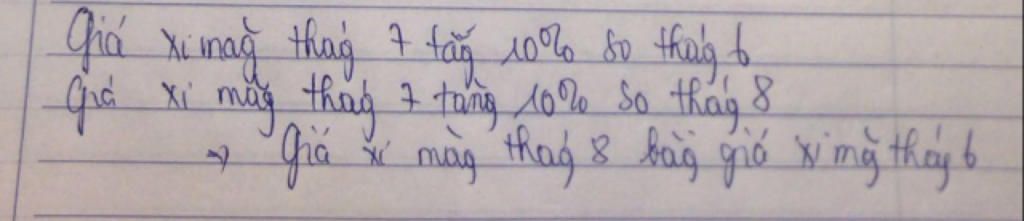 Giá xi măng tháng 7 tăng 10% so tháng 6
Giá xi măng tháng 7 tăng 10% so tháng 8
→ Giá xi măng tháng 8 bằng giá xi măng tháng 6